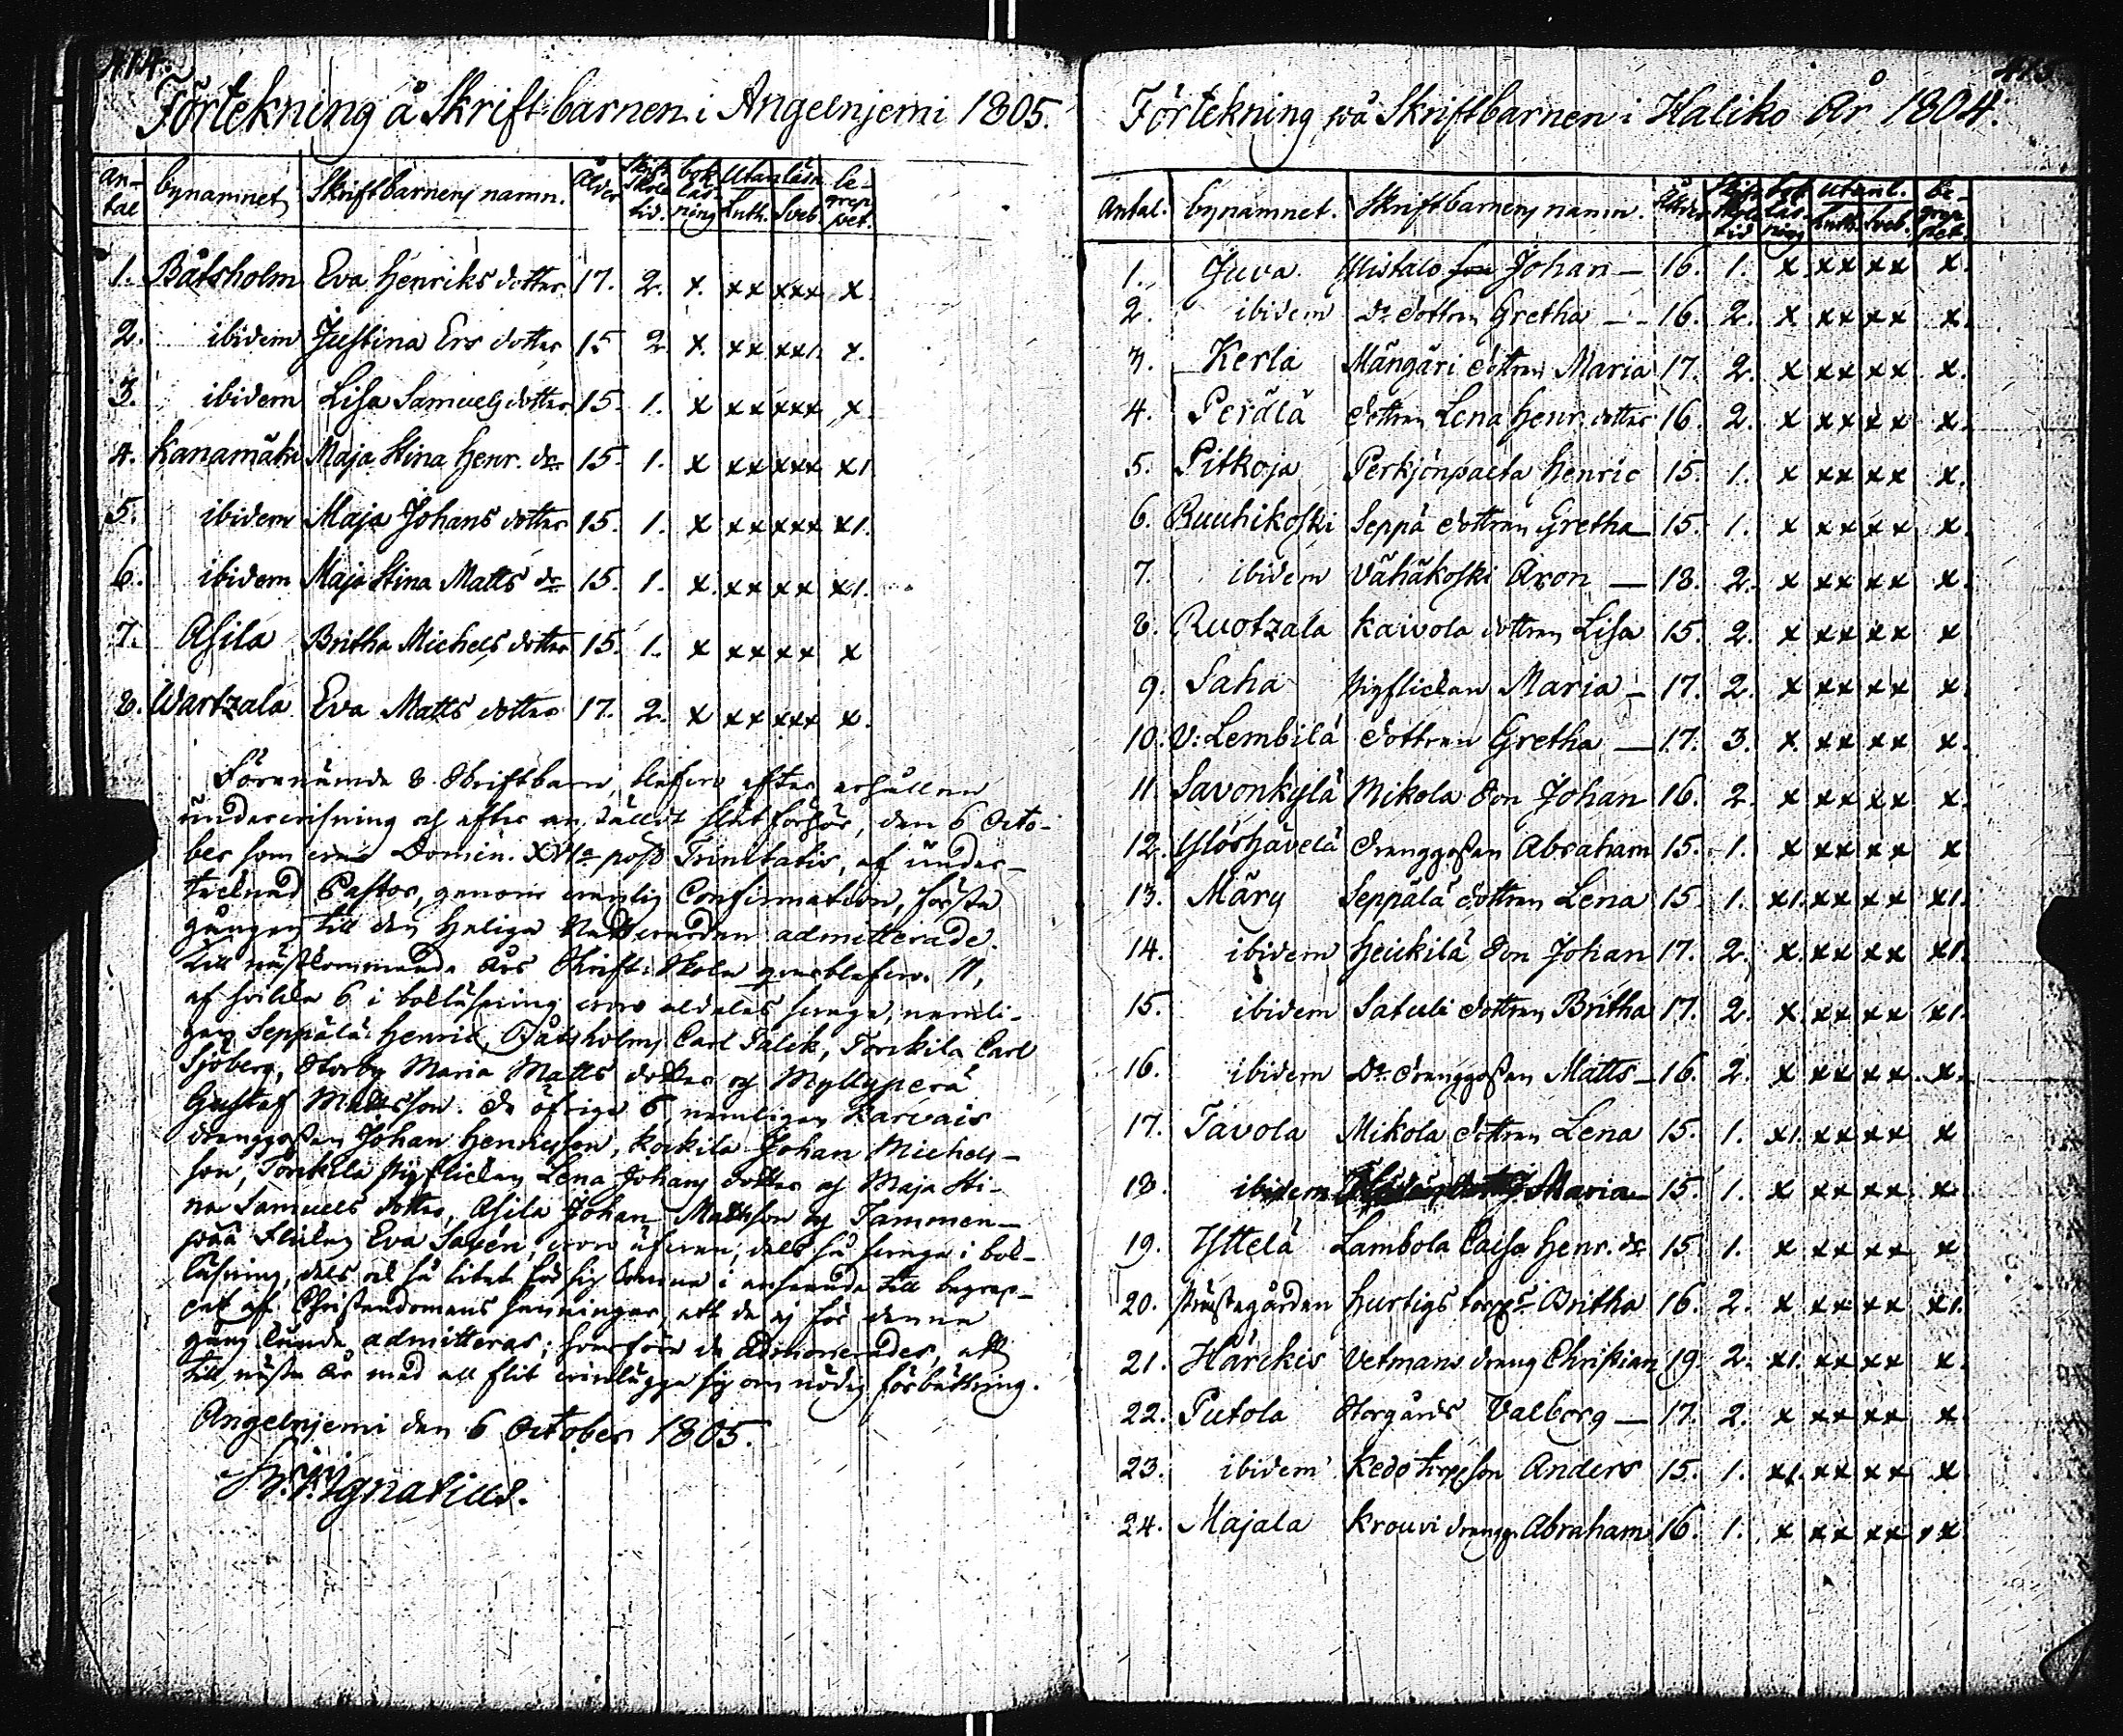 414.
Förtekning å Skrift-barnen i Angelnjemi 1805.
an-tal bynamnet Skriftbarnens namn. Ålder Skrift Skole tid. bok läs-ning Utanläsn. Luth. Sveb. be-grep-pet.
1. Båtsholm Eva Henriks dotter 17. 2. x. xx xxx x.
2. ibidem Justina Ers dotter 15 2 x. xx xx1. x.
3. ibidem Lisa Samuels dotter 15. 1. x xx xxx x.
4. Kanamäki Maja Stina Henr. dr 15. 1. x xx xxx x1
5. ibidem Maja Johans dotter 15. 1. x xx xxx x1.
6. ibidem Maja Stina Matts dr 15. 1. x. xx xx x1.
7. Asila Britha Michels dotter 15. 1. x xx xx x
8. Wartzala Eva Matts dotter 17. 2. x xx xxx x.
Förenämde 8. Skriftbarn, blefwo efter erhållen
underwisning och efter anstäldt slutförhör, den 6 Octo-
ber som war Domin. XVIa post Trinitatis, af under-
tecknad Pastor, genom wanlig Confirmation, första
gången till den heliga Nattwarden admitterade.
Till nästkommande års Skrift-Skola qwarblefwo 11,
af hwilka 6 i bokläsning woro aldeles swaga, nemli-
gen Seppälä Henric, Båtsholms Carl Falck, Torkila Carl
Sjöberg, Storby Maria Matts dotter och Myllyperä
Gustaf Mattsson. De öfrige 6 nemligen Karvais
drenggossen Johan Henricsson, Kokkila Johan Michels-
son, Torkila pigflickan Lena Johans dotter och Maja Sti-
na Samuels dotter, Asila Johan Mattsson och Tammen-
pää flickan Eva Savén, woro äfwen, dels så swaga i bok-
läsning, dels ock så litet för sig komna i anseende till begrep-
pet af Christendomens sanningar, att de ej för denna
gång kunde admitteras; hwarföre de admonerades, att
till nästa år med all flit winlägga sig om nödig förbättring.
Angelnjemi den 6 October 1805.
Ignatius.
415
Förtekning på Skriftbarnen i Haliko År 1804.
Antal. bynamnet. Skriftbarnens namn. Ålder Skrift Skole tid bok läs-ning utanl. Luth. Sveb. be-grep-pet.
1. Juva Ylistalo Johan — 16. 1. x xx xx x.
2. ibidem Do dottren Gretha — 16. 2. x xx xx x.
3. Kerla Mängäri dottren Maria 17. 2. x xx xx x.
4. Perälä dottren Lena Henr. dotter 16. 2. x xx xx x.
5. Pitkoja Perkjönpaeta Henric 15. 1. x xx xx x.
6. Ruuhikoski Seppä dottren Gretha — 15. 1. x xx xx x.
7. ibidem Vähäkoski Aron — 18. 2. x xx xx x.
8. Ruotzala Kaivola dottren Lisa 15. 2. x xx xx x
9. Saha pigflickan Maria — 17. 2. x xx xx x.
10. V: Lembilä dottren Gretha — 17. 3. x xx xx x.
11. Savonkylä Mikola Son Johan 16. 2. x xx xx x.
12. Ylöshävelä drenggossen Abraham 15. 1. x xx xx x
13. Märy Seppälä dottren Lena 15. 1. x1. xx xx x1.
14. ibidem Heickilä Son Johan 17. 2. x. xx xx x1.
15. ibidem Satuli dottren Britha 17. 2. x. xx xx x1.
16. ibidem Do drenggossen Matts — 16. 2. x xx xx x.
17. Tavola Mikola dottren Lena 15. 1. x1. xx xx x
18. ibidem Maria — 15. 1. x xx xx x
19. Yttelä Lambola Caisa Henr. dr 15. 1. x xx xx x
20. Prästegården Hurtigs torps Britha 16. 2. x xx xx x1.
21. Härckis Vetmans dreng Christian 19. 2. x1. xx xx x.
22. Putola Storgårds Valborg — 17. 2. x xx xx x
23. ibidem Kedo torpson Anders 15. 1. x1. xx xx x
24. Majala Krouvi drengg. Abraham 16. 1. x xx xx x